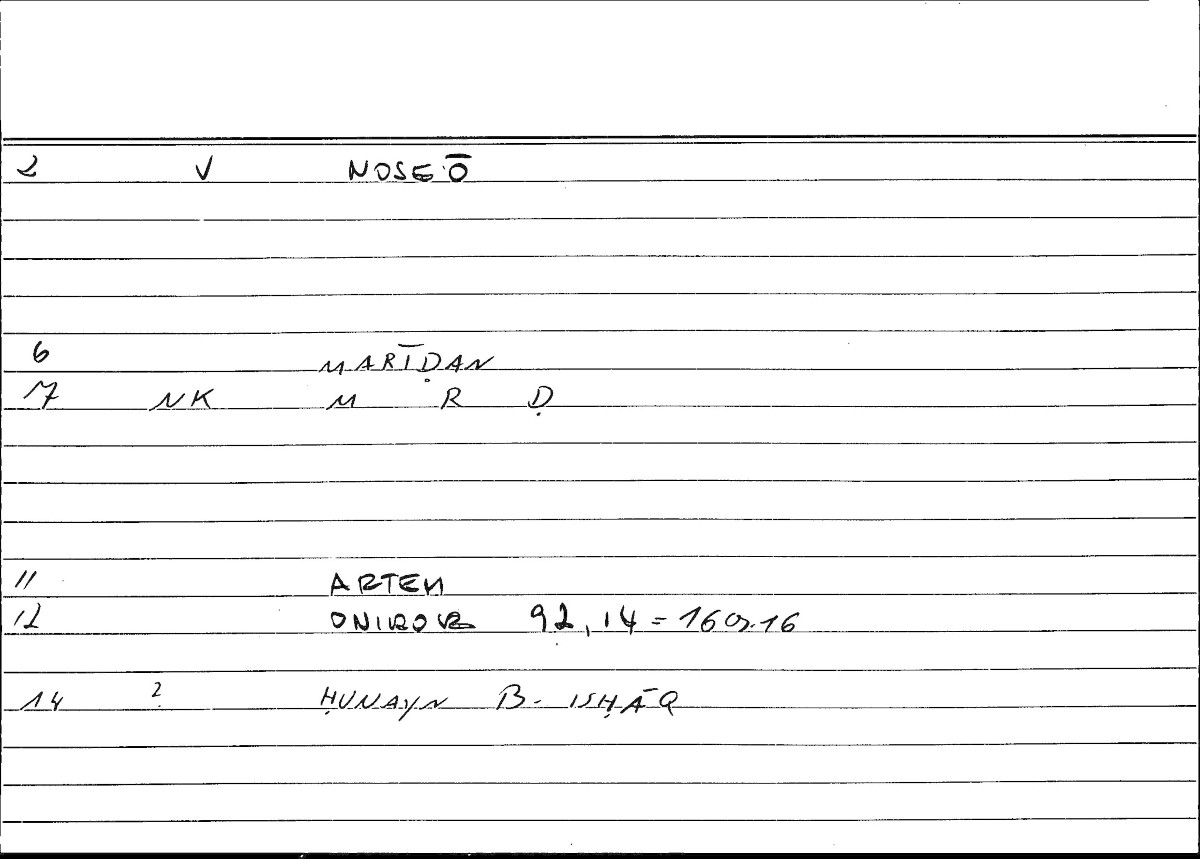 2 V NOSEŌ
6 MARĪḌAN
17 NK M R Ḍ
11 ARTEM
12 ONIROCR 92,14 = 16
14 ? ḤUNAYN B. ISḤĀQ